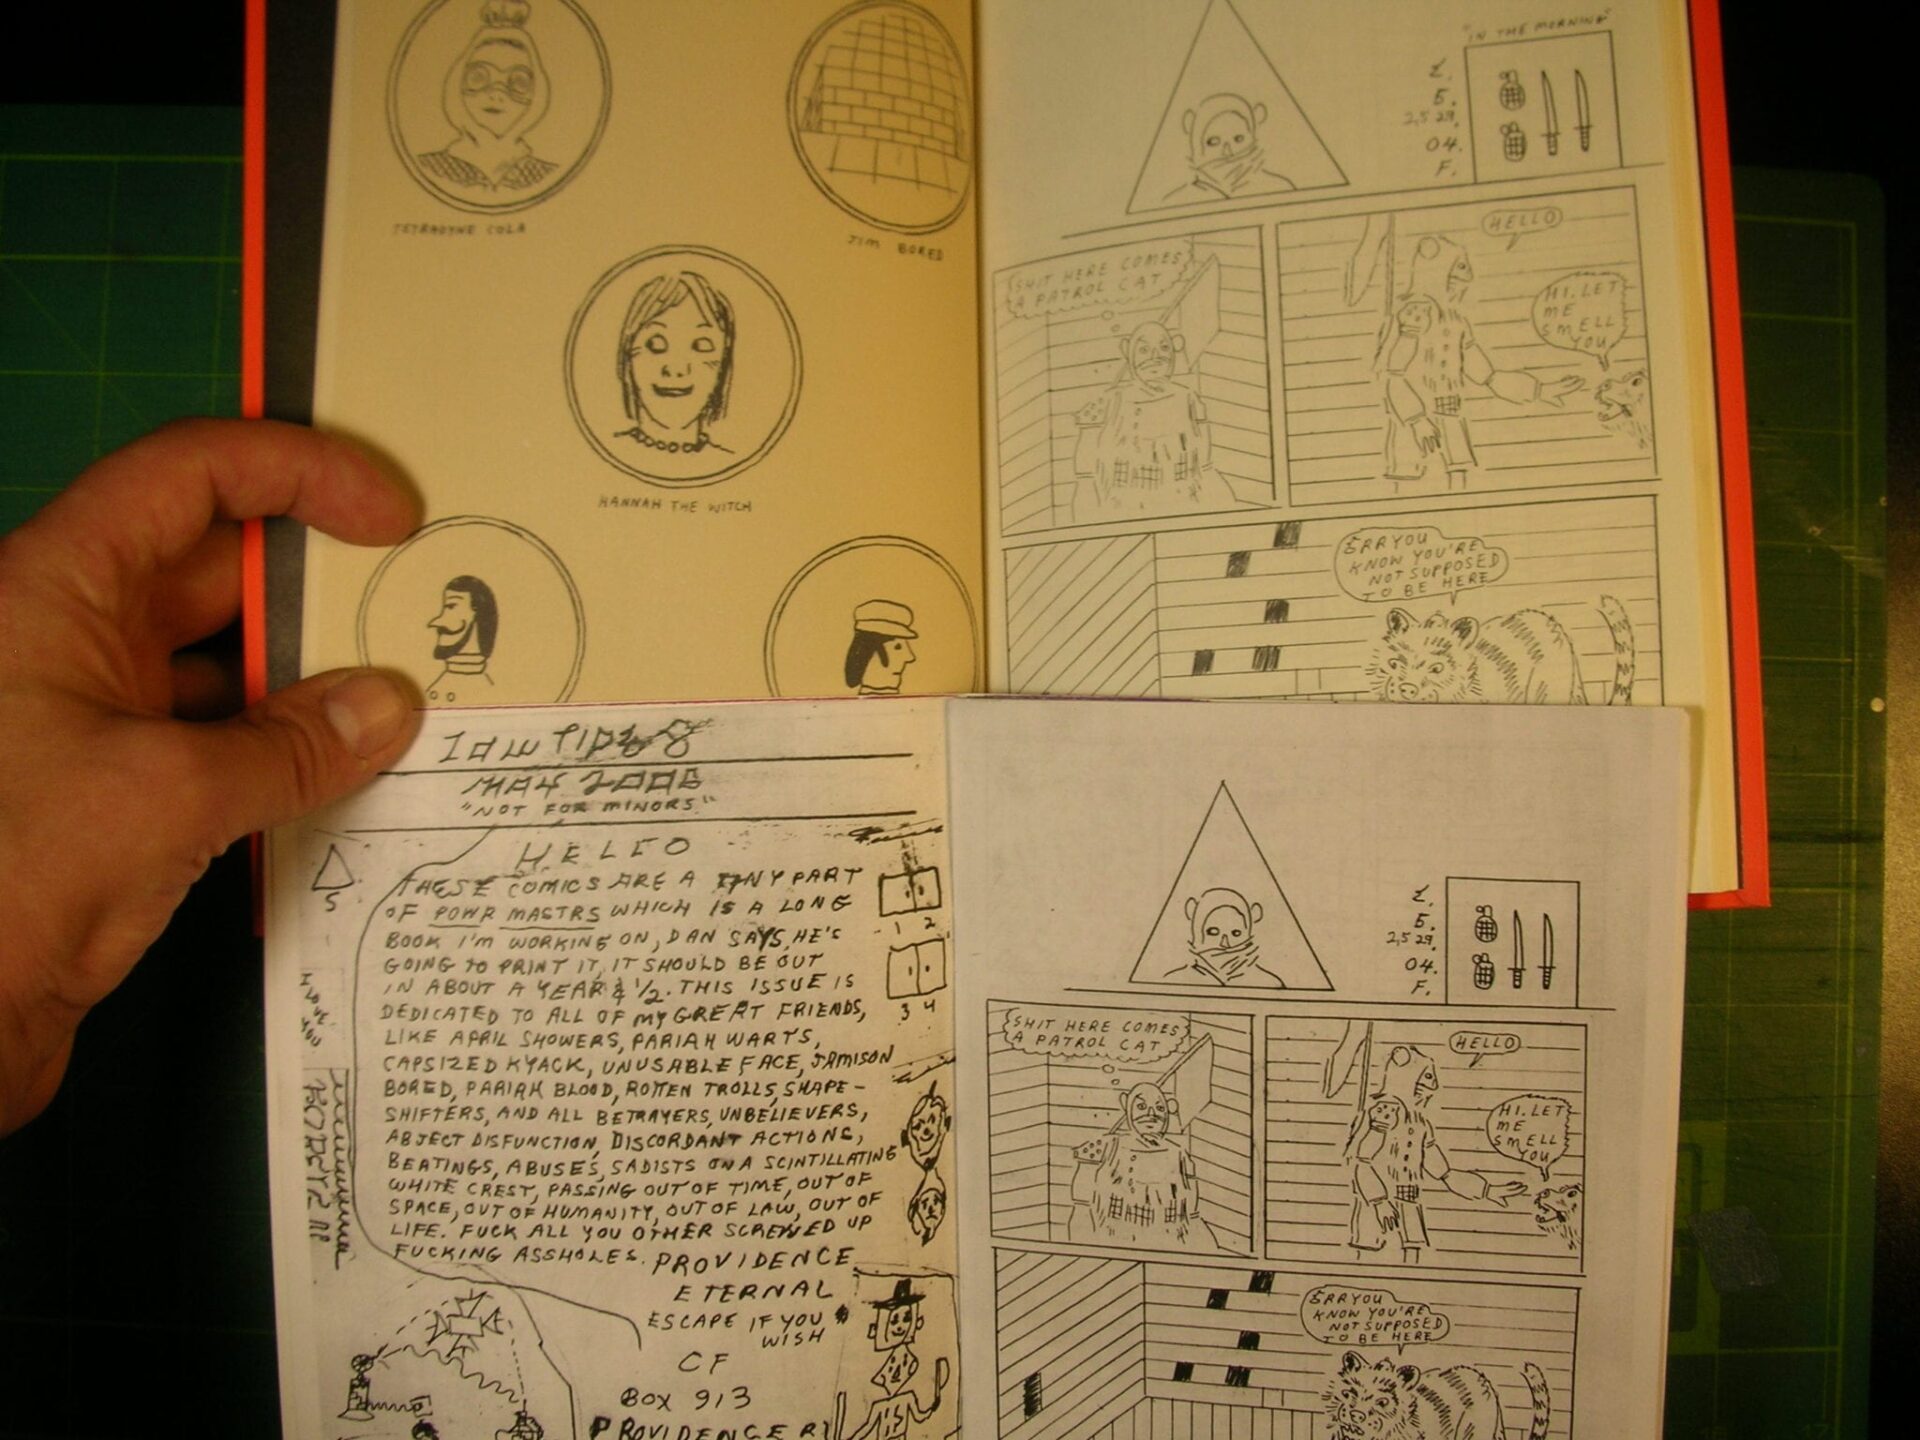 TETRADYNE COLA
JIM BORED
HANNAH THE WITCH
"IN THE MORNING"
L.
5.
2,5 29.
04.
F.
SHIT HERE COMES
A PATROL CAT
HELLO
HI. LET
ME
SMELL
YOU
ERRYOU
KNOW YOU'RE
NOT SUPPOSED
TO BE HERE
MAY 2006
"NOT FOR MINORS"
HELLO
THESE COMICS ARE A TINY PART
OF POWR MASTRS WHICH IS A LONG
BOOK I'M WORKING ON, DAN SAYS HE'S
GOING TO PRINT IT, IT SHOULD BE OUT
IN ABOUT A YEAR & 1/2. THIS ISSUE IS
DEDICATED TO ALL OF MY GREAT FRIENDS,
LIKE APRIL SHOWERS, PARIAH WARTS,
CAPSIZED KYACK, UNUSABLE FACE, JAMISON
BORED, PARIAH BLOOD, ROTTEN TROLLS, SHAPE-
SHIFTERS, AND ALL BETRAYERS, UNBELIEVERS,
ABJECT DISFUNCTION, DISCORDANT ACTIONS,
BEATINGS, ABUSES, SADISTS ON A SCINTILLATING
WHITE CREST, PASSING OUT OF TIME, OUT OF
SPACE, OUT OF HUMANITY, OUT OF LAW, OUT OF
LIFE. FUCK ALL YOU OTHER SCREWED UP
FUCKING ASSHOLES. PROVIDENCE
ETERNAL
ESCAPE IF YOU
WISH
CF
BOX 913
PROVIDENCE RI
1 2
3 4
5
L.
5.
2,5 29.
04.
F.
SHIT HERE COMES
A PATROL CAT
HELLO
HI. LET
ME
SMELL
YOU
ERRYOU
KNOW YOU'RE
NOT SUPPOSED
TO BE HERE